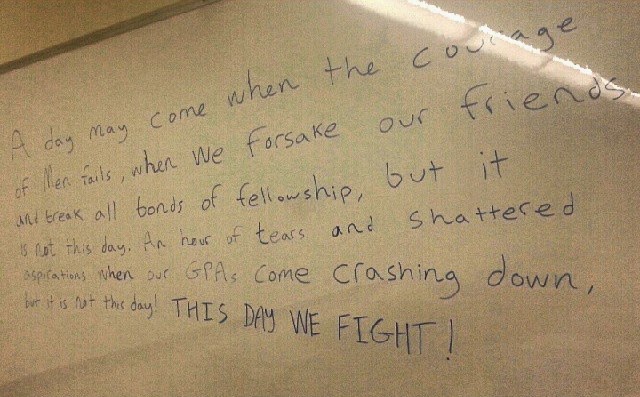 A day may come when the courage
of Men fails, when we forsake our friends
and break all bonds of fellowship, but it
is not this day. An hour of tears and shattered
aspirations when our GPAs come crashing down,
but it is not this day! THIS DAY WE FIGHT!